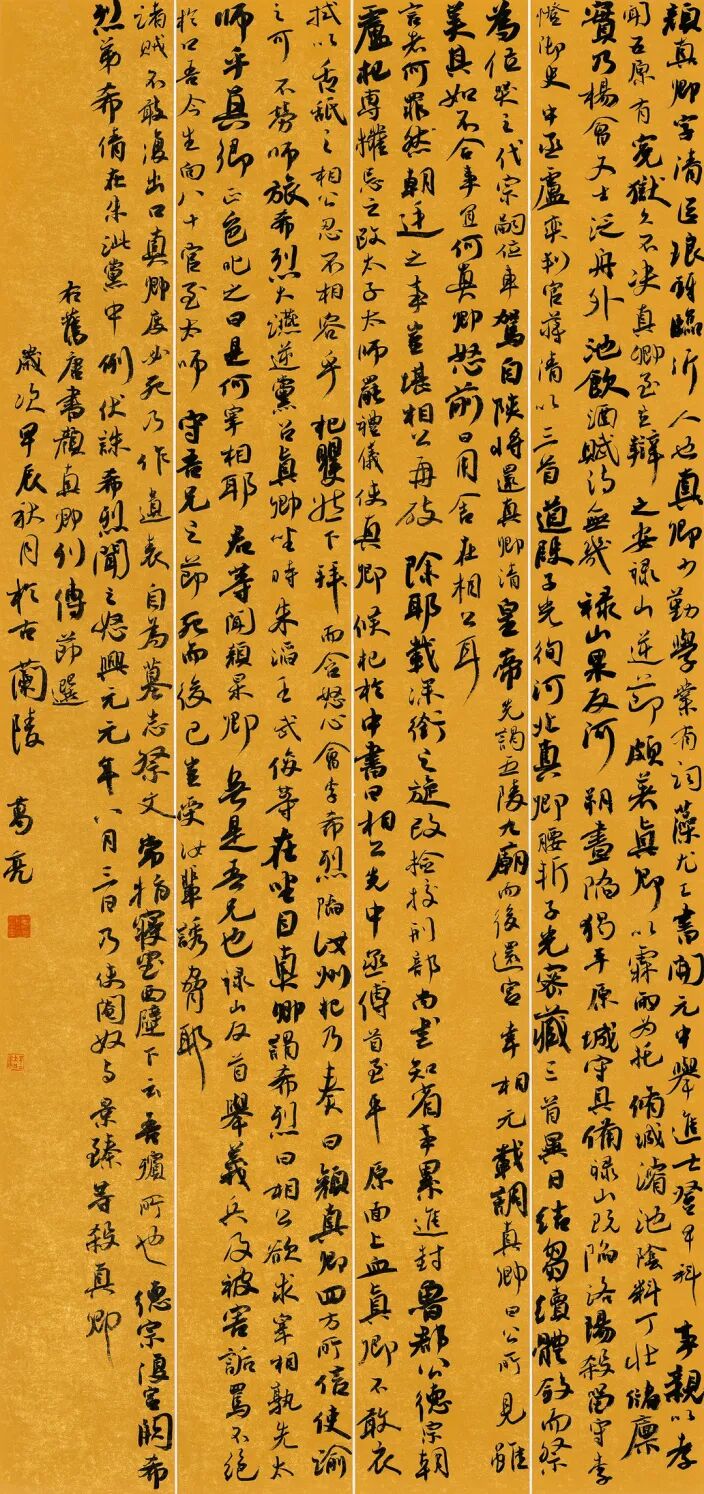 顏真卿字清臣琅琊臨沂人也真卿少勤學業有詞藻尤工書開元中舉進士登甲科事親以孝
聞五原有冤獄久不决真卿至立辯之安禄山逆節頗著真卿以霖雨為托脩城濬池陰料丁壯儲廪
實乃楊會文士泛舟外池飲酒賦詩無幾禄山果反河朔盡陷獨平原城守具備禄山既陷洛陽殺留守李
憕御史中丞盧奕判官蔣清以三首遣段子光徇河北真卿腰斬子光密藏三首異日結芻續體斂而祭
為位哭之代宗嗣位車駕自陝將還真卿請皇帝先謁五陵九廟而後還宮宰相元載謂真卿曰公所見雖
美其如不合事宜何真卿怒前曰用舍在相公耳
言者何罪然朝廷之事豈堪相公再破除耶載深銜之旋改檢校刑部尚書知省事累進封魯郡公德宗朝
盧杞專權忌之改太子太師罷禮儀使真卿候杞於中書曰相公先中丞傅首至平原面上血真卿不敢衣
拭以舌舐之相公忍不相容乎杞矍然下拜而含怒心會李希烈陷汝州杞乃奏曰顏真卿四方所信使諭
之可不勞師旅希烈大讌逆黨召真卿坐時朱滔王武俊等在坐目真卿謂希烈曰相公欲求宰相孰先太
師乎真卿正色叱之曰是何宰相耶君等聞顏杲卿無是吾兄也禄山反首舉義兵及被害詬罵不絕
於口吾今生向八十官至太師守吾兄之節死而後已豈受汝輩誘脅耶
諸賊不敢復出口真卿度必死乃作遺表自為墓志祭文常指寢室西壁下云吾殯所也德宗復宮闕希
烈弟希倩在朱泚黨中例伏誅希烈聞之怒興元元年八月三日乃使閹奴与景臻等殺真卿
右舊唐書顏真卿列傳節選
歲次甲辰秋月於古蘭陵葛亮